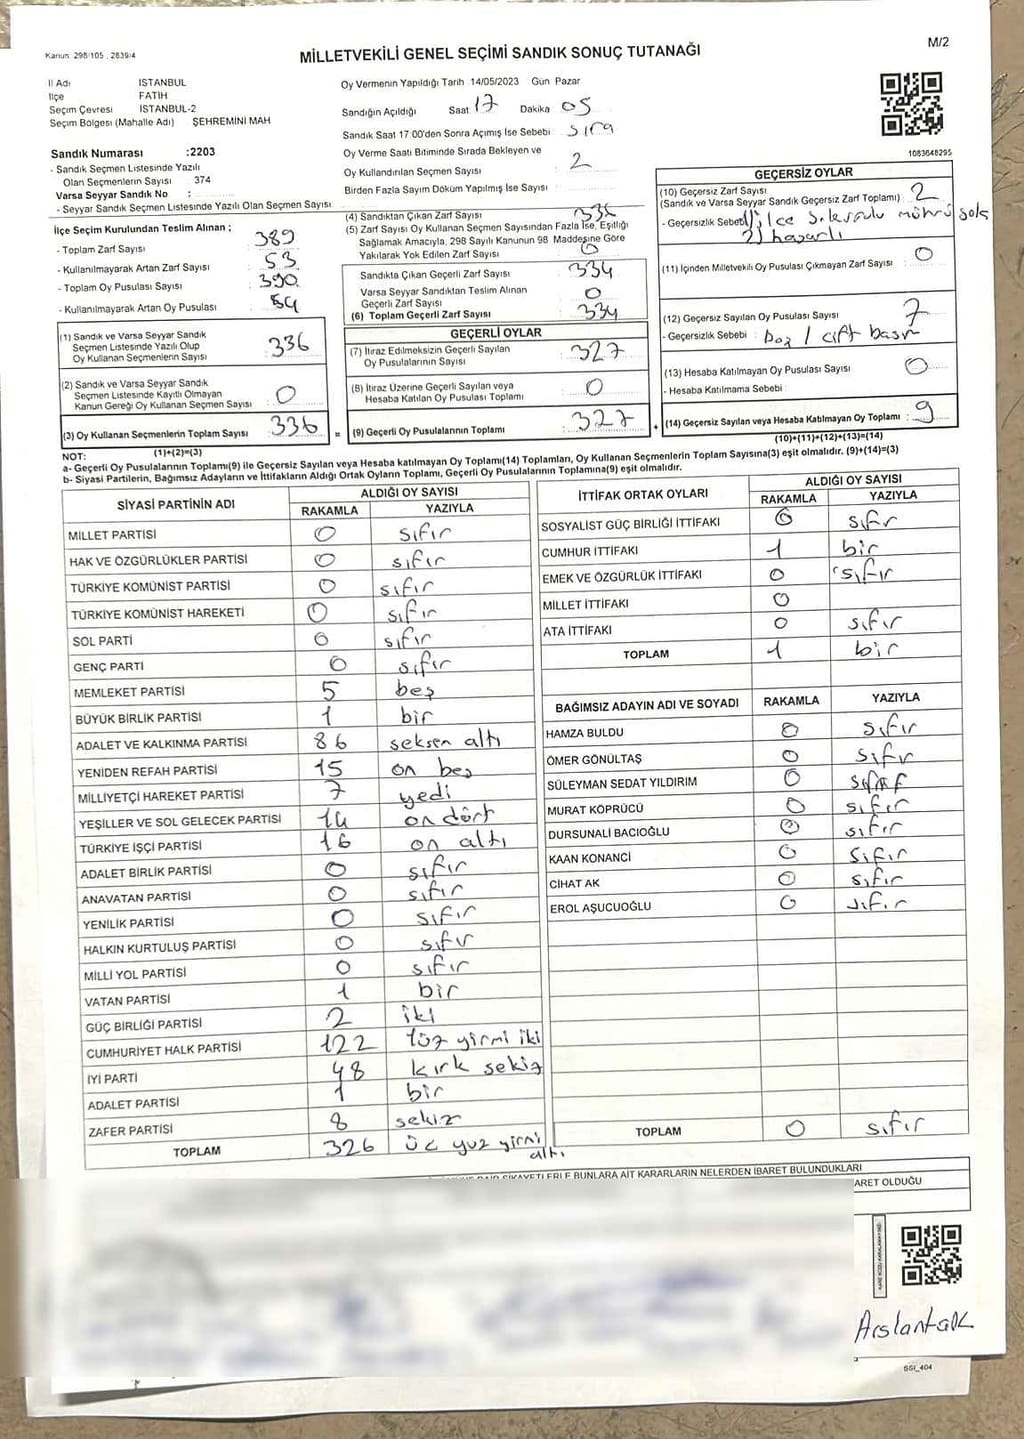 Kanun 298/105 , 2839/4
MİLLETVEKİLİ GENEL SEÇİMİ SANDIK SONUÇ TUTANAĞI
M/2
İl Adı İSTANBUL
İlçe FATİH
Seçim Çevresi İSTANBUL-2
Seçim Bölgesi (Mahalle Adı) ŞEHREMİNİ MAH
Sandık Numarası :2203
- Sandık Seçmen Listesinde Yazılı
Olan Seçmenlerin Sayısı 374
Varsa Seyyar Sandık No :
- Seyyar Sandık Seçmen Listesinde Yazılı Olan Seçmen Sayısı
Oy Vermenin Yapıldığı Tarih 14/05/2023 Gün Pazar
Sandığın Açıldığı Saat 17 Dakika 05
Sandık Saat 17 00'den Sonra Açımış İse Sebebi : Sıra
Oy Verme Saati Bitiminde Sırada Bekleyen ve
Oy Kullandırılan Seçmen Sayısı 2
Birden Fazla Sayım Döküm Yapılmış İse Sayısı
1083648295
İlçe Seçim Kurulundan Teslim Alınan ;
- Toplam Zarf Sayısı 389
- Kullanılmayarak Artan Zarf Sayısı 53
- Toplam Oy Pusulası Sayısı 390
- Kullanılmayarak Artan Oy Pusulası 54
(1) Sandık ve Varsa Seyyar Sandık
Seçmen Listesinde Yazılı Olup
Oy Kullanan Seçmenlerin Sayısı 336
(2) Sandık ve Varsa Seyyar Sandık
Seçmen Listesinde Kayıtlı Olmayan
Kanun Gereği Oy Kullanan Seçmen Sayısı 0
(3) Oy Kullanan Seçmenlerin Toplam Sayısı 336
(1)+(2)=(3)
(4) Sandıktan Çıkan Zarf Sayısı
(5) Zarf Sayısı Oy Kullanan Seçmen Sayısından Fazla İse, Eşitliği
Sağlamak Amacıyla, 298 Sayılı Kanunun 98 Maddesine Göre
Yakılarak Yok Edilen Zarf Sayısı 0
Sandıkta Çıkan Geçerli Zarf Sayısı 334
Varsa Seyyar Sandıktan Teslim Alınan
Geçerli Zarf Sayısı 0
(6) Toplam Geçerli Zarf Sayısı 334
GEÇERLİ OYLAR
(7) İtiraz Edilmeksizin Geçerli Sayılan
Oy Pusulalarının Sayısı 327
(8) İtiraz Üzerine Geçerli Sayılan veya
Hesaba Katılan Oy Pusulası Toplamı 0
= (9) Geçerli Oy Pusulalarının Toplamı 327
GEÇERSİZ OYLAR
(10) Geçersiz Zarf Sayısı
(Sandık ve Varsa Seyyar Sandık Geçersiz Zarf Toplamı) 2
- Geçersizlik Sebebi
(11) İçinden Milletvekili Oy Pusulası Çıkmayan Zarf Sayısı 0
(12) Geçersiz Sayılan Oy Pusulası Sayısı 7
- Geçersizlik Sebebi : boş / çift
(13) Hesaba Katılmayan Oy Pusulası Sayısı 0
- Hesaba Katılmama Sebebi
+ (14) Geçersiz Sayılan veya Hesaba Katılmayan Oy Toplamı : 9
(10)+(11)+(12)+(13)=(14)
NOT:
a- Geçerli Oy Pusulalarının Toplamı(9) ile Geçersiz Sayılan veya Hesaba katılmayan Oy Toplamı(14) Toplamları, Oy Kullanan Seçmenlerin Toplam Sayısına(3) eşit olmalıdır. (9)+(14)=(3)
b- Siyasi Partilerin, Bağımsız Adayların ve İttifakların Aldığı Ortak Oyların Toplamı, Geçerli Oy Pusulalarının Toplamına(9) eşit olmalıdır.
SİYASİ PARTİNİN ADI ALDIĞI OY SAYISI
RAKAMLA YAZIYLA
MİLLET PARTİSİ 0 sıfır
HAK VE ÖZGÜRLÜKLER PARTİSİ 0 sıfır
TÜRKİYE KOMÜNİST PARTİSİ 0 sıfır
TÜRKİYE KOMÜNİST HAREKETİ 0 sıfır
SOL PARTİ 0 sıfır
GENÇ PARTİ 0 sıfır
MEMLEKET PARTİSİ 5 beş
BÜYÜK BİRLİK PARTİSİ 1 bir
ADALET VE KALKINMA PARTİSİ 86 seksen altı
YENİDEN REFAH PARTİSİ 15 on beş
MİLLİYETÇİ HAREKET PARTİSİ 7 yedi
YEŞİLLER VE SOL GELECEK PARTİSİ 14 on dört
TÜRKİYE İŞÇİ PARTİSİ 16 on altı
ADALET BİRLİK PARTİSİ 0 sıfır
ANAVATAN PARTİSİ 0 sıfır
YENİLİK PARTİSİ 0 sıfır
HALKIN KURTULUŞ PARTİSİ 0 sıfır
MİLLİ YOL PARTİSİ 0 sıfır
VATAN PARTİSİ 1 bir
GÜÇ BİRLİĞİ PARTİSİ 2 iki
CUMHURİYET HALK PARTİSİ 122 yüz yirmi iki
İYİ PARTİ 48 kırk sekiz
ADALET PARTİSİ 1 bir
ZAFER PARTİSİ 8 sekiz
TOPLAM 326 üç yuz yirmi altı
İTTİFAK ORTAK OYLARI ALDIĞI OY SAYISI
RAKAMLA YAZIYLA
SOSYALİST GÜÇ BİRLİĞİ İTTİFAKI 0 sıfır
CUMHUR İTTİFAKI 1 bir
EMEK VE ÖZGÜRLÜK İTTİFAKI 0 sıfır
MİLLET İTTİFAKI 0
ATA İTTİFAKI 0 sıfır
TOPLAM 1 bir
BAĞIMSIZ ADAYIN ADI VE SOYADI RAKAMLA YAZIYLA
HAMZA BULDU 0 sıfır
ÖMER GÖNÜLTAŞ 0 sıfır
SÜLEYMAN SEDAT YILDIRIM 0 sıfır
MURAT KÖPRÜCÜ 0 sıfır
DURSUNALİ BACIOĞLU 0 sıfır
KAAN KONANCİ 0 sıfır
CİHAT AK 0 sıfır
EROL AŞUCUOĞLU 0 sıfır
TOPLAM 0 sıfır
ŞİKAYETLERLE BUNLARA AİT KARARLARIN NELERDEN İBARET BULUNDUKLARI
ARET OLDUĞU
SSİ_404